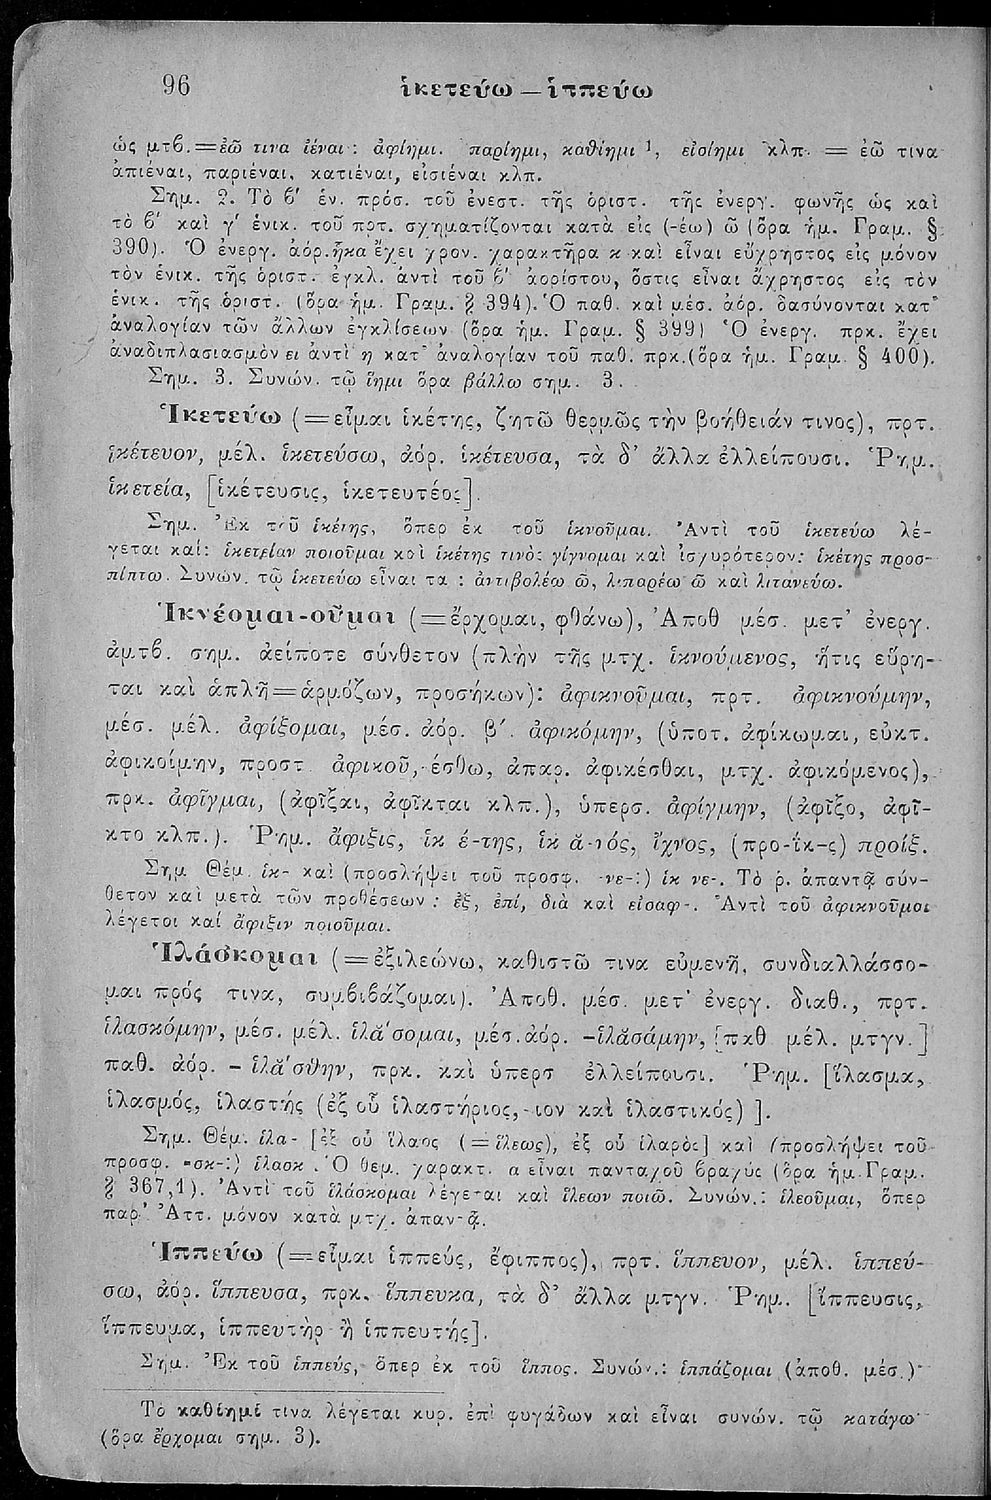 96 ἱκετεύω — ἱππεύω
ὡς μτβ.=ἐῶ τινα ἰέναι : ἀφίημι. παρίημι, καθίημι ¹, εἰσίημι κλπ. = ἐῶ τινα
ἀπιέναι, παριέναι, κατιέναι, εἰσιέναι κλπ.
Σημ. 2. Τὸ β΄ ἑν. πρόσ. τοῦ ἐνεστ. τῆς ὁριστ. τῆς ἐνεργ. φωνῆς ὡς καὶ
τὸ β΄ καὶ γ΄ ἑνικ. τοῦ πρτ. σχηματίζονται κατὰ εἰς (-έω) ῶ (ὅρα ἡμ. Γραμ. §
390). Ὁ ἐνεργ. ἀόρ. ἧκα ἔχει χρον. χαρακτῆρα κ καὶ εἶναι εὔχρηστος εἰς μόνον
τὸν ἑνικ. τῆς ὁριστ. ἐγκλ. ἀντὶ τοῦ β΄ ἀορίστου, ὅστις εἶναι ἄχρηστος εἰς τὸν
ἑνικ. τῆς ὁριστ. (ὅρα ἡμ. Γραμ. § 394). Ὁ παθ. καὶ μέσ. ἀόρ. δασύνονται κατ᾽
ἀναλογίαν τῶν ἄλλων ἐγκλίσεων (ὅρα ἡμ. Γραμ. § 399) Ὁ ἐνεργ. πρκ. ἔχει
ἀναδιπλασιασμὸν ει ἀντὶ η κατ᾽ ἀναλογίαν τοῦ παθ. πρκ.(ὅρα ἡμ. Γραμ. § 400).
Σημ. 3. Συνών. τῷ ἵημι ὅρα βάλλω σημ. 3.
Ἱκετεύω (=εἶμαι ἱκέτης, ζητῶ θερμῶς τὴν βοήθειάν τινος), πρτ.
ἱκέτευον, μέλ. ἱκετεύσω, ἀόρ. ἱκέτευσα, τὰ δ᾽ ἄλλα ἐλλείπουσι. Ῥημ.
ἱκετεία, [ἱκέτευσις, ἱκετευτέος].
Σημ. Ἐκ τοῦ ἱκέτης, ὅπερ ἐκ τοῦ ἱκνοῦμαι. Ἀντὶ τοῦ ἱκετεύω λέ-
γεται καί: ἱκετείαν ποιοῦμαι καὶ ἱκέτης τινὸς γίγνομαι καὶ ἰσχυρότερον: ἱκέτης προσ-
πίπτω. Συνών. τῷ ἱκετεύω εἶναι τὰ : ἀντιβολέω ῶ, λιπαρέω ῶ καὶ λιτανεύω.
Ἱκνέομαι-οῦμαι (=ἔρχομαι, φθάνω), Ἀποθ μέσ. μετ᾽ ἐνεργ.
ἀμτβ. σημ. ἀείποτε σύνθετον (πλὴν τῆς μτχ. ἱκνούμενος, ἥτις εὕρη-
ται καὶ ἁπλῆ=ἁρμόζων, προσήκων): ἀφικνοῦμαι, πρτ. ἀφικνούμην,
μέσ. μέλ. ἀφίξομαι, μέσ. ἀόρ. β΄. ἀφικόμην, (ὑποτ. ἀφίκωμαι, εὐκτ.
ἀφικοίμην, προστ. ἀφικοῦ,-έσθω, ἀπαρ. ἀφικέσθαι, μτχ. ἀφικόμενος),
πρκ. ἀφῖγμαι, (ἀφῖξαι, ἀφῖκται κλπ.), ὑπερσ. ἀφίγμην, (ἀφῖξο, ἀφῖ-
κτο κλπ.). Ῥημ. ἄφιξις, ἱκ έ-της, ἱκ ᾰ-νός, ἴχνος, (προ-ΐκ-ς) προίξ.
Σημ Θέμ. ἱκ- καὶ (προσλήψει τοῦ προσφ. -νε-:) ἱκ νε-. Τὸ ῥ. ἀπαντᾷ σύν-
θετον καὶ μετὰ τῶν προθέσεων : ἐξ, ἐπί, διὰ καὶ εἰσαφ-. Ἀντὶ τοῦ ἀφικνοῦμαι
λέγεται καί ἄφιξιν ποιοῦμαι.
Ἱλάσκομαι (=ἐξιλεώνω, καθιστῶ τινα εὐμενῆ, συνδιαλλάσσο-
μαι πρός τινα, συμβιβάζομαι). Ἀποθ. μέσ. μετ᾽ ἐνεργ. διαθ., πρτ.
ἱλασκόμην, μέσ. μέλ. ἱλᾰ΄σομαι, μέσ.ἀόρ. -ἱλᾰσάμην, [παθ μέλ. μτγν.]
παθ. ἀόρ. - ἱλᾰ΄σθην, πρκ. καὶ ὑπερσ ἐλλείπουσι. Ῥημ. [ἵλασμα,
ἱλασμός, ἱλαστής (ἐξ οὗ ἱλαστήριος,-ιον καὶ ἱλαστικός) ].
Σημ. Θέμ. ἱλα- [ἐξ οὗ ἵλαος (=ἵλεως), ἐξ οὗ ἱλαρὸς] καὶ (προσλήψει τοῦ
προσφ. -σκ-:) ἱλασκ. Ὁ θεμ. χαρακτ. α εἶναι πανταχοῦ βραχύς (ὅρα ἡμ.Γραμ.
§ 367,1). Ἀντὶ τοῦ ἱλάσκομαι λέγεται καὶ ἵλεων ποιῶ. Συνών.: ἱλεοῦμαι, ὅπερ
παρ᾽ Ἀττ. μόνον κατὰ μτχ. ἀπαντᾷ.
Ἱππεύω (=εἶμαι ἱππεύς, ἔφιππος), πρτ. ἵππευον, μέλ. ἱππεύ-
σω, ἀόρ. ἵππευσα, πρκ. ἵππευκα, τὰ δ᾽ ἄλλα μτγν. Ῥημ. [ἵππευσις,
ἵππευμα, ἱππευτὴρ ἢ ἱππευτής].
Σημ. Ἐκ τοῦ ἱππεύς, ὅπερ ἐκ τοῦ ἵππος. Συνών.: ἱππάζομαι (ἀποθ. μέσ.)
Τὸ καθίημί τινα λέγεται κυρ. ἐπὶ φυγάδων καὶ εἶναι συνών. τῷ κατάγω
(ὅρα ἔρχομαι σημ. 3).